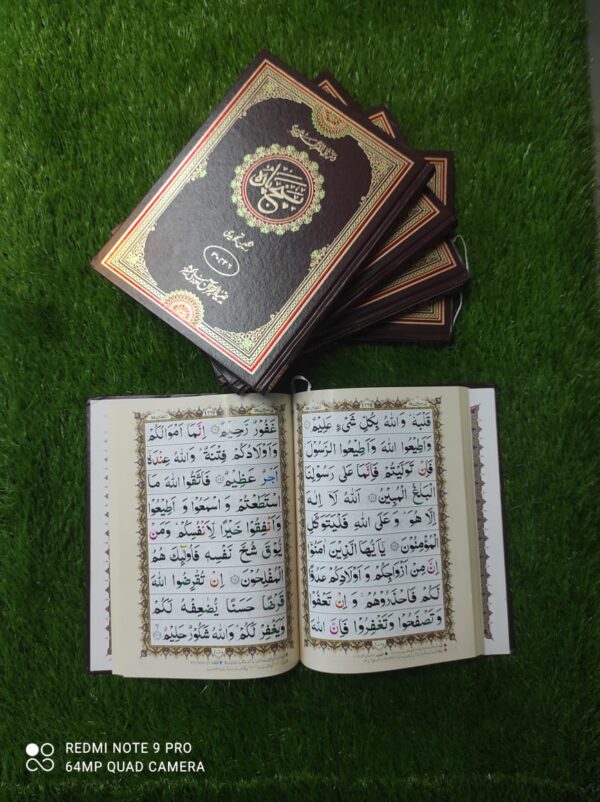 پنج پارہ
تجویدی
قَلْبَهٗ وَاللّٰهُ بِكُلِّ شَیْءٍ عَلِیْمٌ
وَاَطِیْعُوا اللّٰهَ وَاَطِیْعُوا الرَّسُوْلَ
فَاِنْ تَوَلَّیْتُمْ فَاِنَّمَا عَلٰی رَسُوْلِنَا
الْبَلٰغُ الْمُبِیْنُ اَللّٰهُ لَاۤ اِلٰهَ
اِلَّا هُوَ وَ عَلَی اللّٰهِ فَلْیَتَوَكَّلِ
الْمُؤْمِنُوْنَ یٰۤاَیُّهَا الَّذِیْنَ اٰمَنُوْۤا
اِنَّ مِنْ اَزْوَاجِكُمْ وَ اَوْلَادِكُمْ عَدُوًّا
لَّكُمْ فَاحْذَرُوْهُمْ وَ اِنْ تَعْفُوْا
وَ تَصْفَحُوْا وَ تَغْفِرُوْا فَاِنَّ اللّٰهَ
غَفُوْرٌ رَّحِیْمٌ اِنَّمَاۤ اَمْوَالُكُمْ
وَاَوْلَادُكُمْ فِتْنَةٌ وَاللّٰهُ عِنْدَهٗۤ
اَجْرٌ عَظِیْمٌ فَاتَّقُوا اللّٰهَ مَا
اسْتَطَعْتُمْ وَ اسْمَعُوْا وَ اَطِیْعُوْا
وَ اَنْفِقُوْا خَیْرًا لِّاَنْفُسِكُمْ وَمَنْ
یُّوْقَ شُحَّ نَفْسِهٖ فَاُولٰٓئِكَ هُمُ
الْمُفْلِحُوْنَ اِنْ تُقْرِضُوا اللّٰهَ
قَرْضًا حَسَنًا یُّضٰعِفْهُ لَكُمْ
وَیَغْفِرْ لَكُمْ وَاللّٰهُ شَكُوْرٌ حَلِیْمٌ
REDMI NOTE 9 PRO
64MP QUAD CAMERA